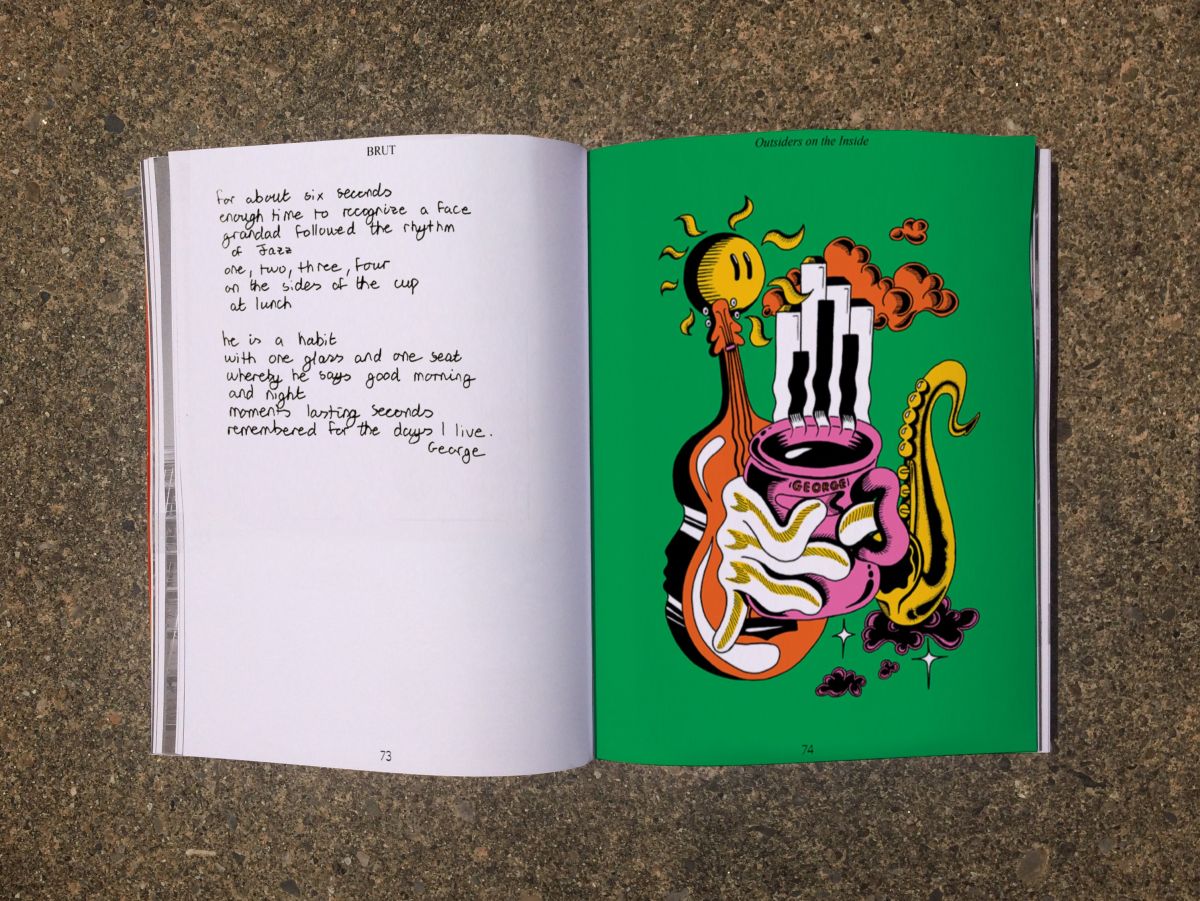 BRUT
for about six seconds
enough time to recognize a face
grandad followed the rhythm
of Jazz
one, two, three, four
on the sides of the cup
at lunch
he is a habit
with one glass and one seat
whereby he says good morning
and night
moments lasting seconds
remembered for the days I live.
George
73
Outsiders on the Inside
GEORGE
74